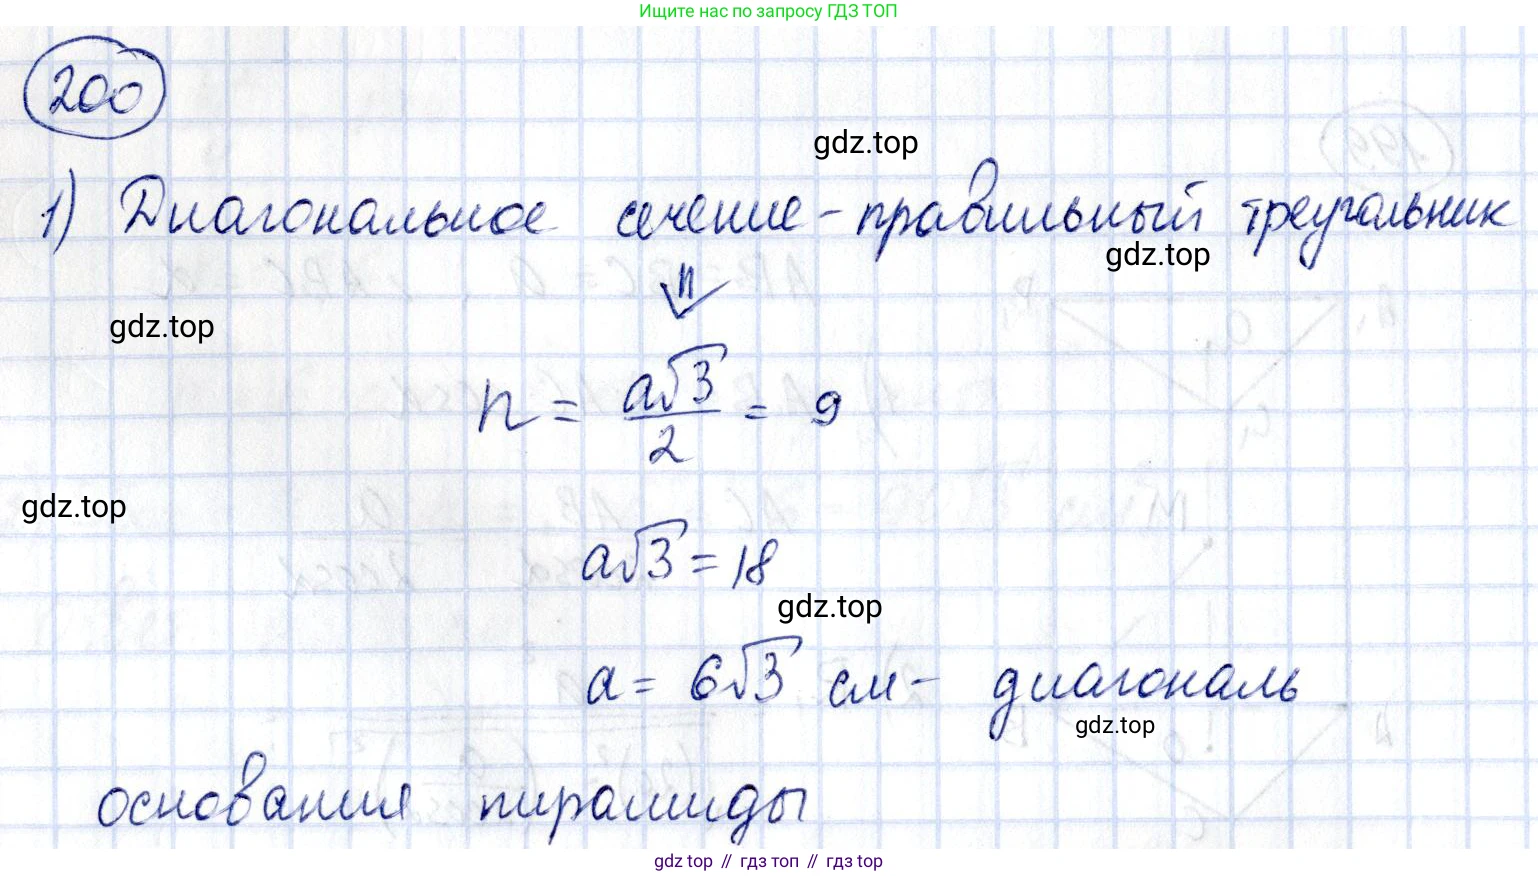 Ищите нас по запросу ГДЗ ТОП
200
gdz.top
1) Диагональное сечение - правильный треугольник
gdz.top
⇓
gdz.top
h = a√3/2 = 9
gdz.top
a√3 = 18
gdz.top
a = 6√3 см - диагональ
gdz.top
основания пирамиды
gdz top // гдз топ // гдз top